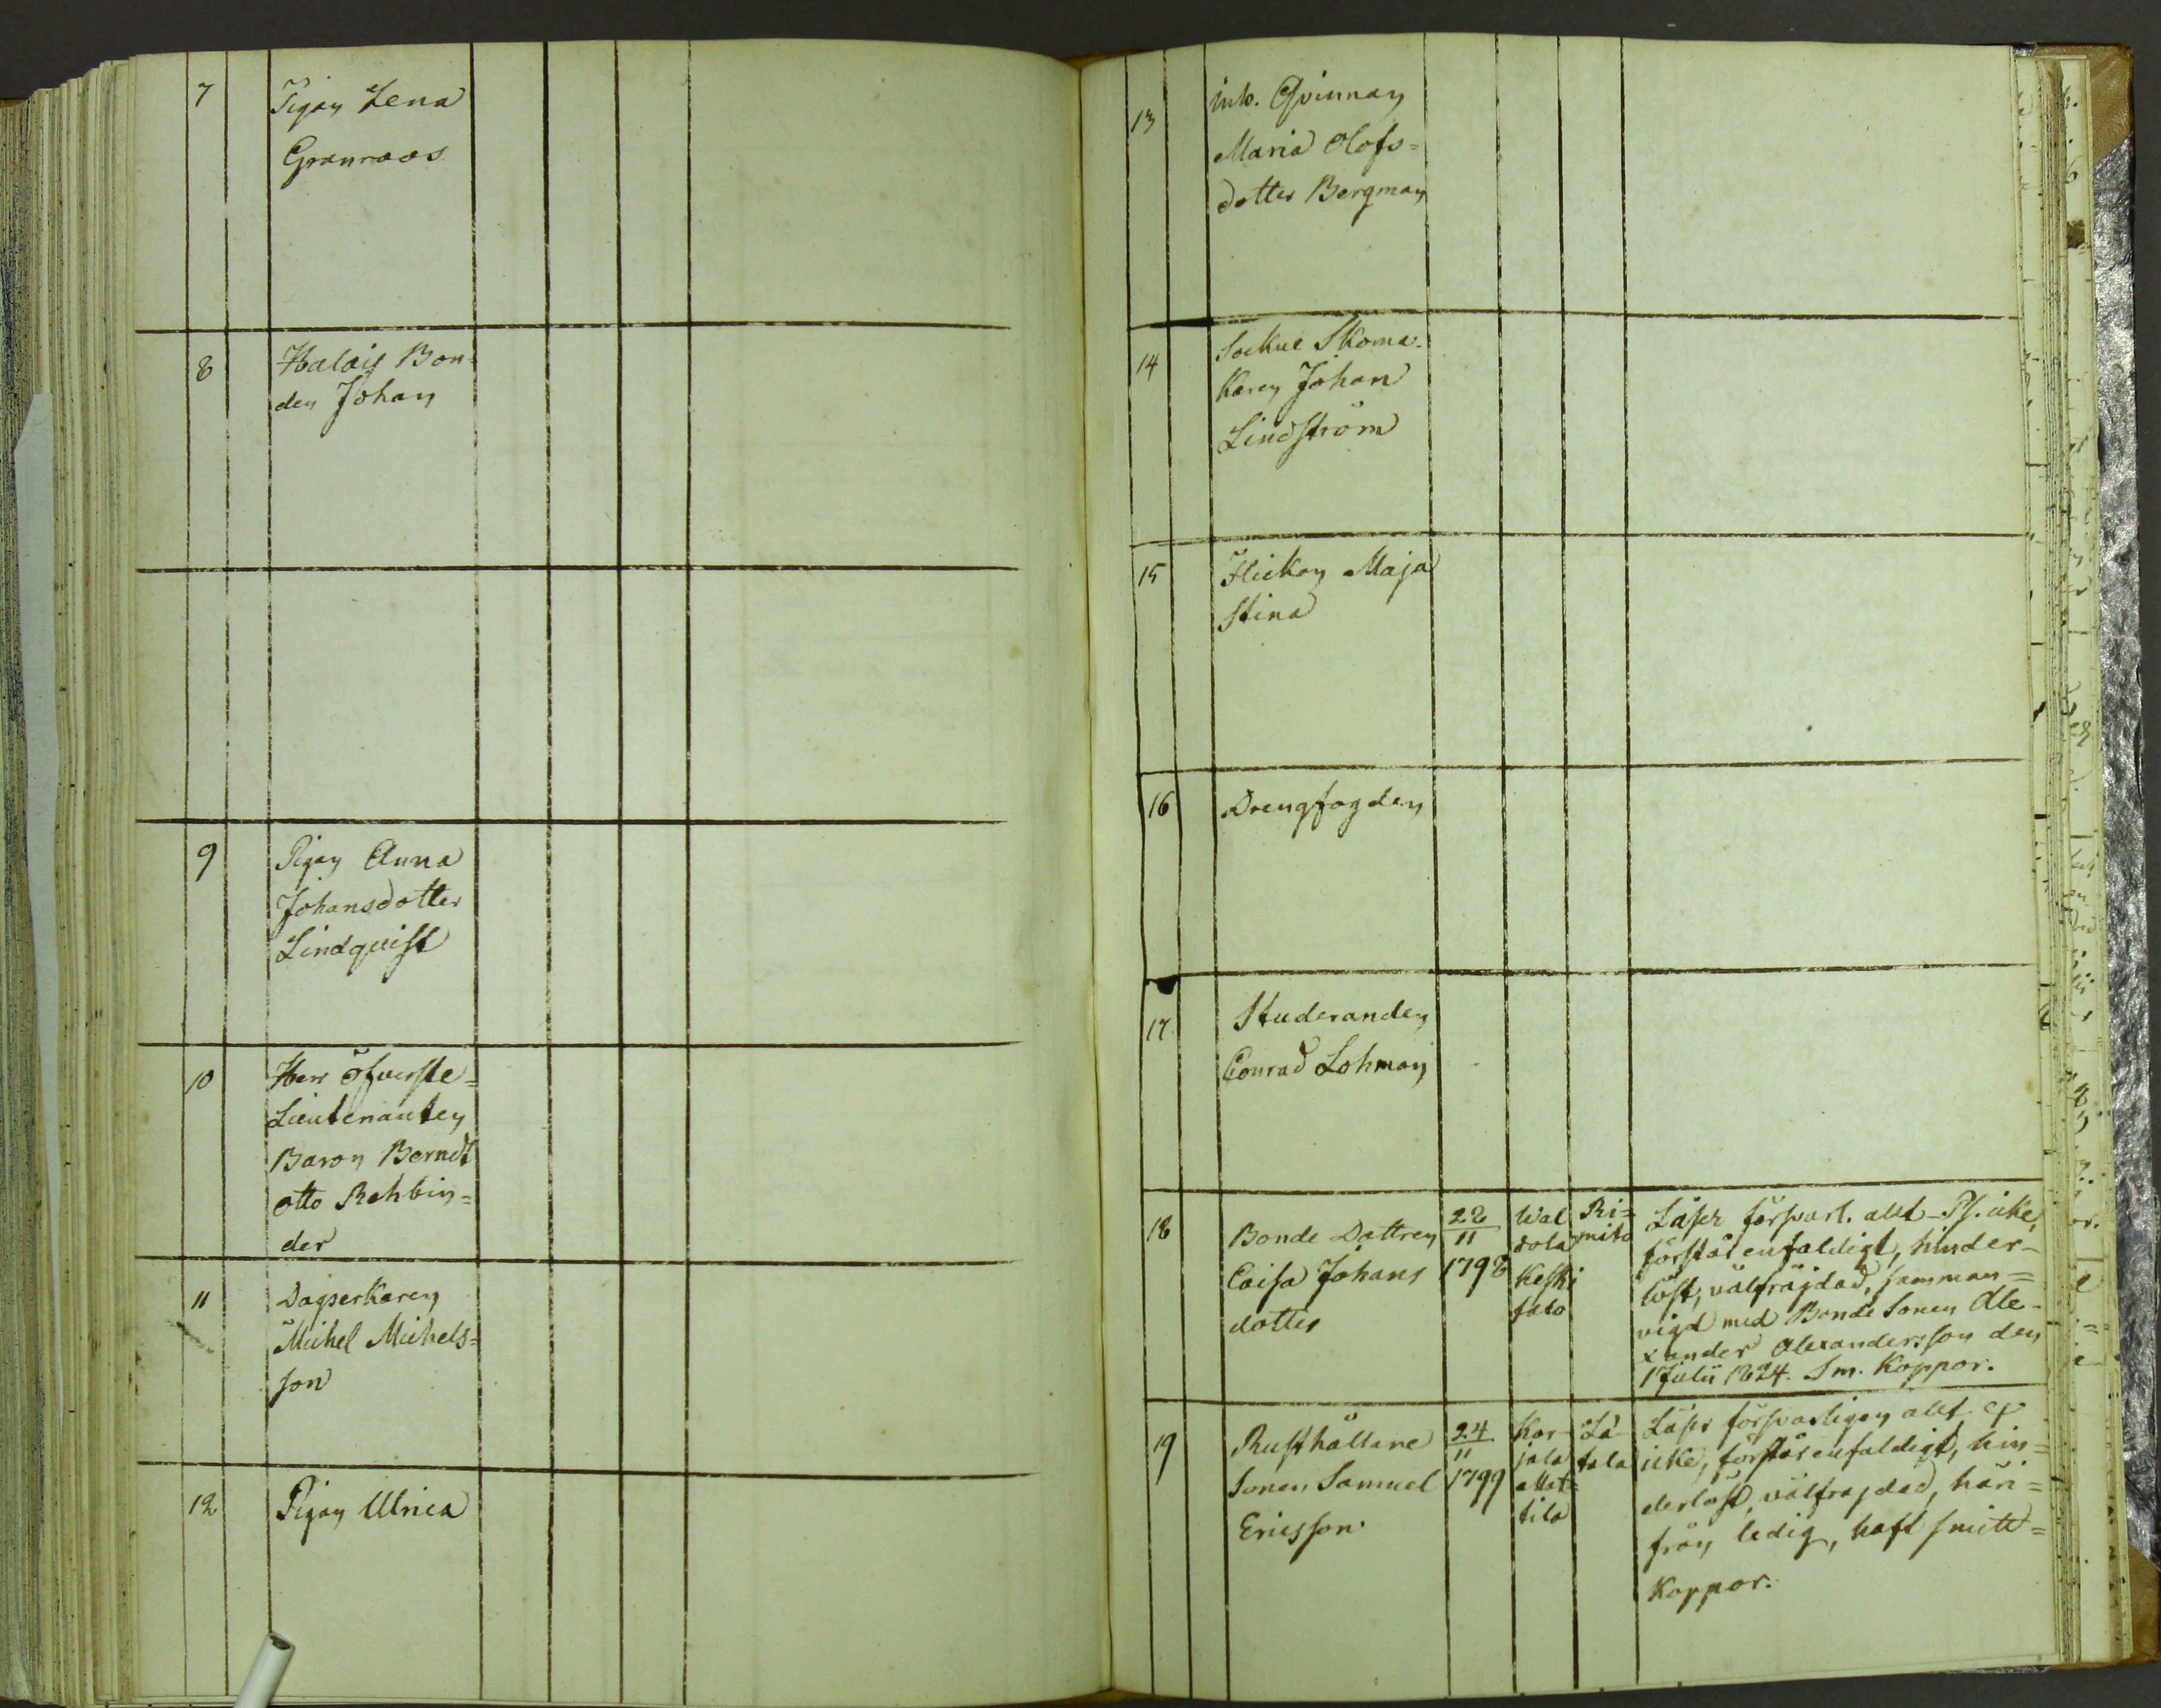 7 Pigan Lena
Granroos
8 Halais Bon-
den Johan
9 Pigan Anna
Johansdotter
Lindqvist
10 Herr öfverste=
Lieutenanten
Baron Berndt
otto Rehbin=
der
11 Dagsverkaren
Michel Michels=
son
12 Pigan Ulrica
13 inh. Qvinnan
Maria Olofs=
dotter Bergman
14 Sockne Skoma-
karen Johan
Lindström
15 Flickan Maja
Stina
16 Drengfogden
17 Studeranden
Conrad Lohman
18 Bonde Dottren
Caisa Johans
dotter
22
11
1798
Wal
dola
Keski
talo
Ri=
mito
Läser försvarl. allt Ps. icke,
förstår enfaldigt, hinder-
löst, välfräjdad, samman=
vigd med Bonde Sonen Ale-
xander Alexandersson den
1 Julii 1824. Sm. Koppor.
19 Rusthållare
Sonen Samuel
Ericsson
24
11
1799
Kar-
jala
attot=
tila
Lå-
tala
Läser försvarligen allt
icke, förstår enfaldigt, hin=
derlöst, välfrajdad, häri=
från ledig, haft smitt=
Koppor.